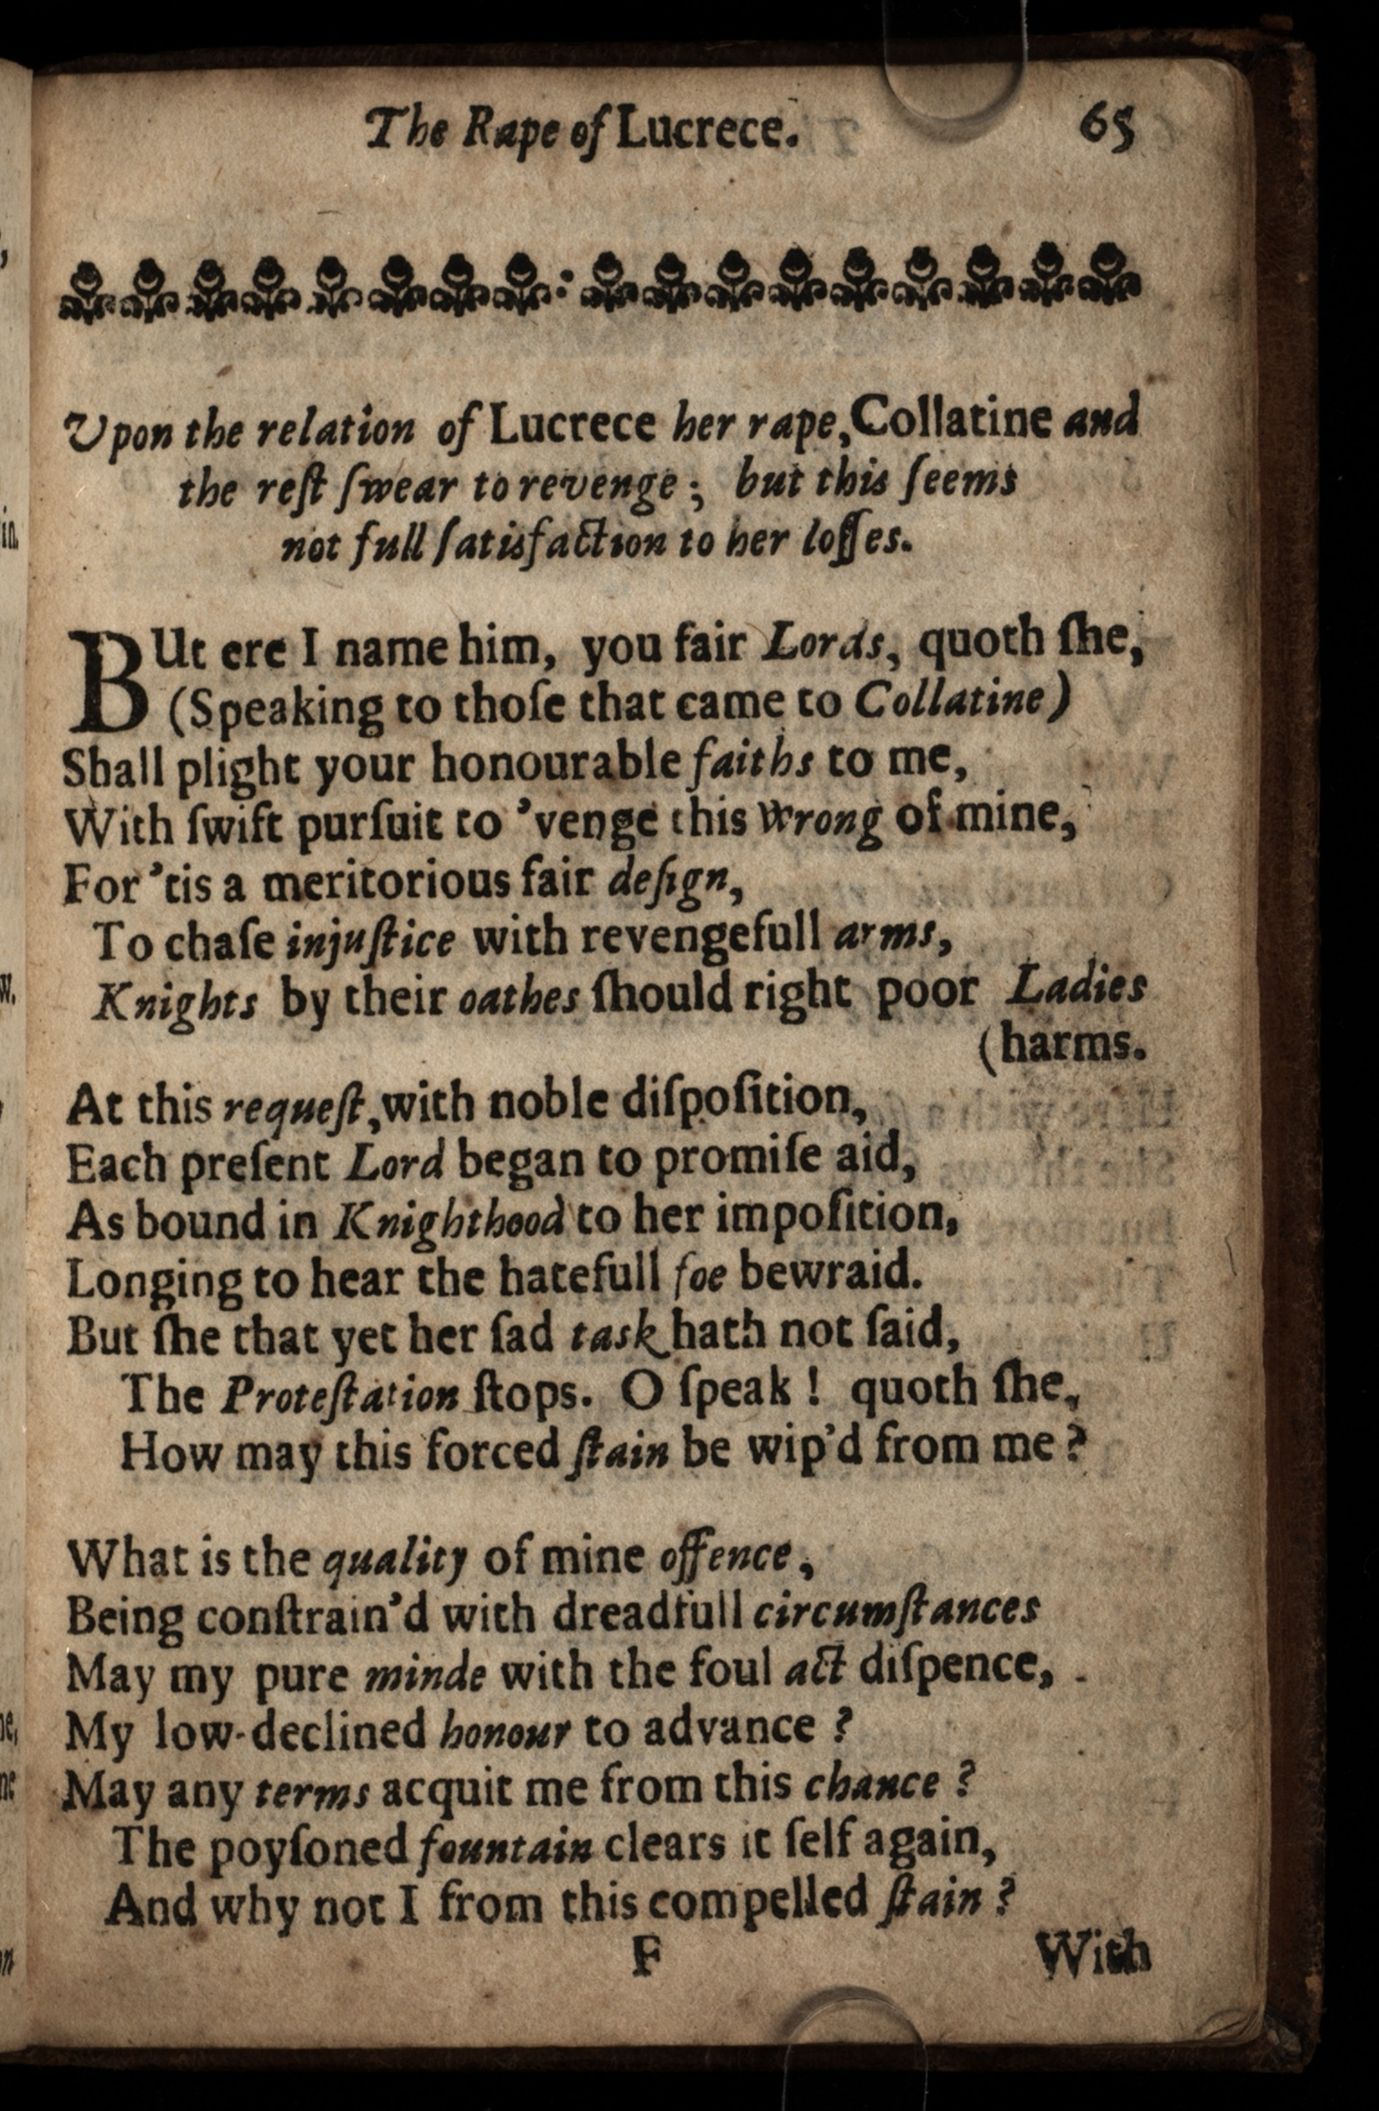 The Rape of Lucrece. 65
Vpon the relation of Lucrece her rape, Collatine and
the reſt ſwear to revenge; but this ſeems
not full ſatisfaction to her loſſes.
BUt ere I name him, you fair Lords, quoth ſhe,
(Speaking to thoſe that came to Collatine)
Shall plight your honourable faiths to me,
With ſwift purſuit to 'venge this wrong of mine,
For 'tis a meritorious fair deſign,
To chaſe injuſtice with revengefull arms,
Knights by their oathes ſhould right poor Ladies
(harms.
At this requeſt, with noble diſpoſition,
Each preſent Lord began to promiſe aid,
As bound in Knighthood to her impoſition,
Longing to hear the hatefull foe bewraid.
But ſhe that yet her ſad task hath not ſaid,
The Proteſtation ſtops. O ſpeak! quoth ſhe,
How may this forced ſtain be wip'd from me?
What is the quality of mine offence,
Being conſtrain'd with dreadfull circumſtances
May my pure minde with the foul act diſpence,
My low-declined honour to advance?
May any terms acquit me from this chance?
The poyſoned fountain clears it ſelf again,
And why not I from this compelled ſtain?
F With